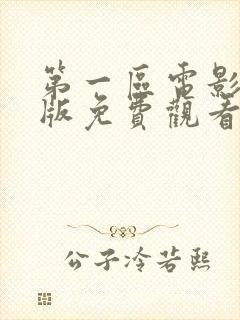 第一區電影
版免費觀看
公子冷若熙